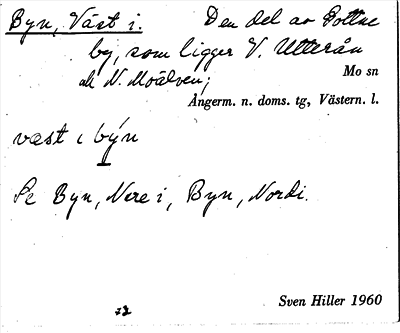 Byn, Väst i. Den del av Gottne
by, som ligger V. Utterån
och N. Moälven;
Mo sn
Ångerm. n. doms. tg, Västern. l.
væst ɩ býn
Se Byn, Nere i, Byn, Nordi.
Sven Hiller 1960